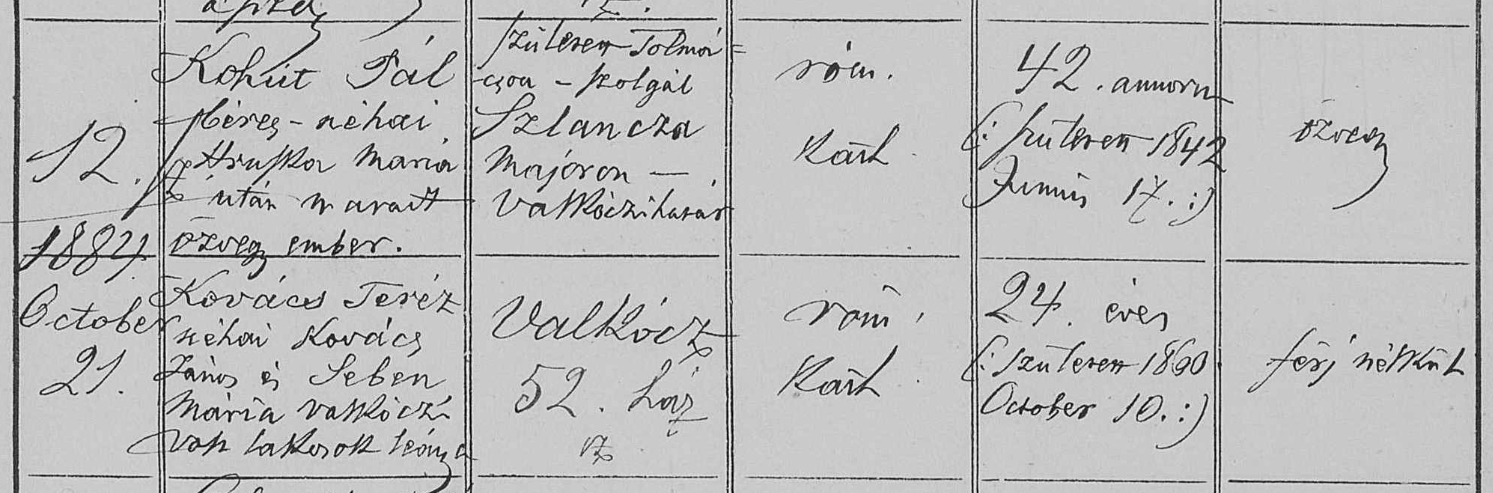 12.
1884.
October
21.
Kohút Pál
béres - néhai
Hruska Maria
után maradt
özvegy ember.
születen Tolmá=
cson - szolgál
Szlancza
Majoron -
Valkóczi határ
róm.
Kath.
42. annoru
(: születen 1842
Junius 17. :)
özvegy
Kovács Teréz
néhai Kovács
János és Seben
Mária valkóczi
volt lakosok leánya
Valkócz
52. ház
róm.
Kath.
24. éves
(: születen 1860.
October 10. :)
férj nélkül